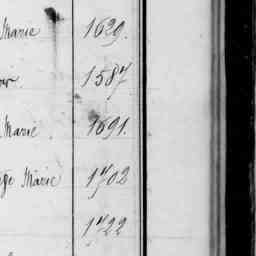 Marie 1629.
1587
Marie 1691.
Marie 1702
1722